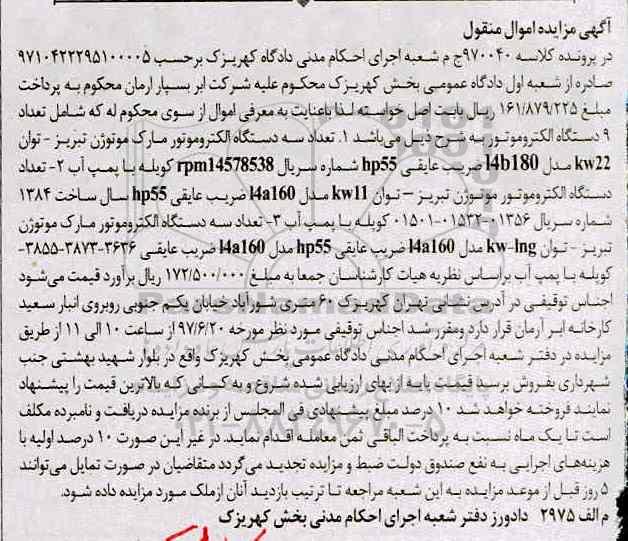 آگهی مزایده اموال منقول
در پرونده کلاسه ۹۷۰۰۴۰ج م شعبه اجرای احکام مدنی دادگاه کهریزک برحسب ۹۷۱۰۴۲۲۲۹۵۱۰۰۰۰۵
صادره از شعبه اول دادگاه عمومی بخش کهریزک محکوم علیه شرکت ابر بسپار ارمان محکوم به پرداخت
مبلغ ۱۶۱/۸۷۹/۲۲۵ ریال بابت اصل خواسته لذا باعنایت به معرفی اموال از سوی محکوم له که شامل تعداد
۹ دستگاه الکتروموتور به شرح ذیل می‌باشد ۱. تعداد سه دستگاه الکتروموتور مارک موتوژن تبریز - توان
kw22 مدل l4b180 ضریب عایقی hp55 شماره سریال rpm14578538 کوپله با پمپ آب ۲- تعداد
دستگاه الکتروموتور موتوژن تبریز – توان kw11 مدل l4a160 ضریب عایقی hp55 سال ساخت ۱۳۸۴
شماره سریال ۰۱۳۵۶-۰۱۵۳۲-۰۱۵۰۱ کوپله با پمپ آب ۳- تعداد سه دستگاه الکتروموتور مارک موتوژن
تبریز - توان kw-lng مدل l4a160 ضریب عایقی hp55 مدل l4a160 ضریب عایقی ۳۶۳۶-۳۸۷۳-۳۸۵۵-
کوپله با پمپ آب براساس نظریه هیات کارشناسان جمعا به مبلغ ۱۷۲/۵۰۰/۰۰۰ ریال برآورد قیمت می‌شود
اجناس توقیفی در آدرس نشانی تهران کهریزک ۶۰ متری شورآباد خیابان یکم جنوبی روبروی انبار سعید
کارخانه ابر آرمان قرار دارد ومقرر شد اجناس توقیفی مورد نظر مورخه ۹۷/۶/۲۰ از ساعت ۱۰ الی ۱۱ از طریق
مزایده در دفتر شعبه اجرای احکام مدنی دادگاه عمومی بخش کهریزک واقع در بلوار شهید بهشتی جنب
شهرداری بفروش برسد قیمت پایه از بهای ارزیابی شده شروع و به کسانی که بالاترین قیمت را پیشنهاد
نمایند فروخته خواهد شد ۱۰ درصد مبلغ پیشنهادی فی المجلس از برنده مزایده دریافت و نامبرده مکلف
است تا یک ماه نسبت به پرداخت الباقی ثمن معامله اقدام نماید. در غیر این صورت ۱۰ درصد اولیه با
هزینه‌های اجرایی به نفع صندوق دولت ضبط و مزایده تجدید می‌گردد متقاضیان در صورت تمایل می‌توانند
۵ روز قبل از موعد مزایده به این شعبه مراجعه تا ترتیب بازدید آنان ازملک مورد مزایده داده شود.
م الف ۲۹۷۵ دادورز دفتر شعبه اجرای احکام مدنی بخش کهریزک